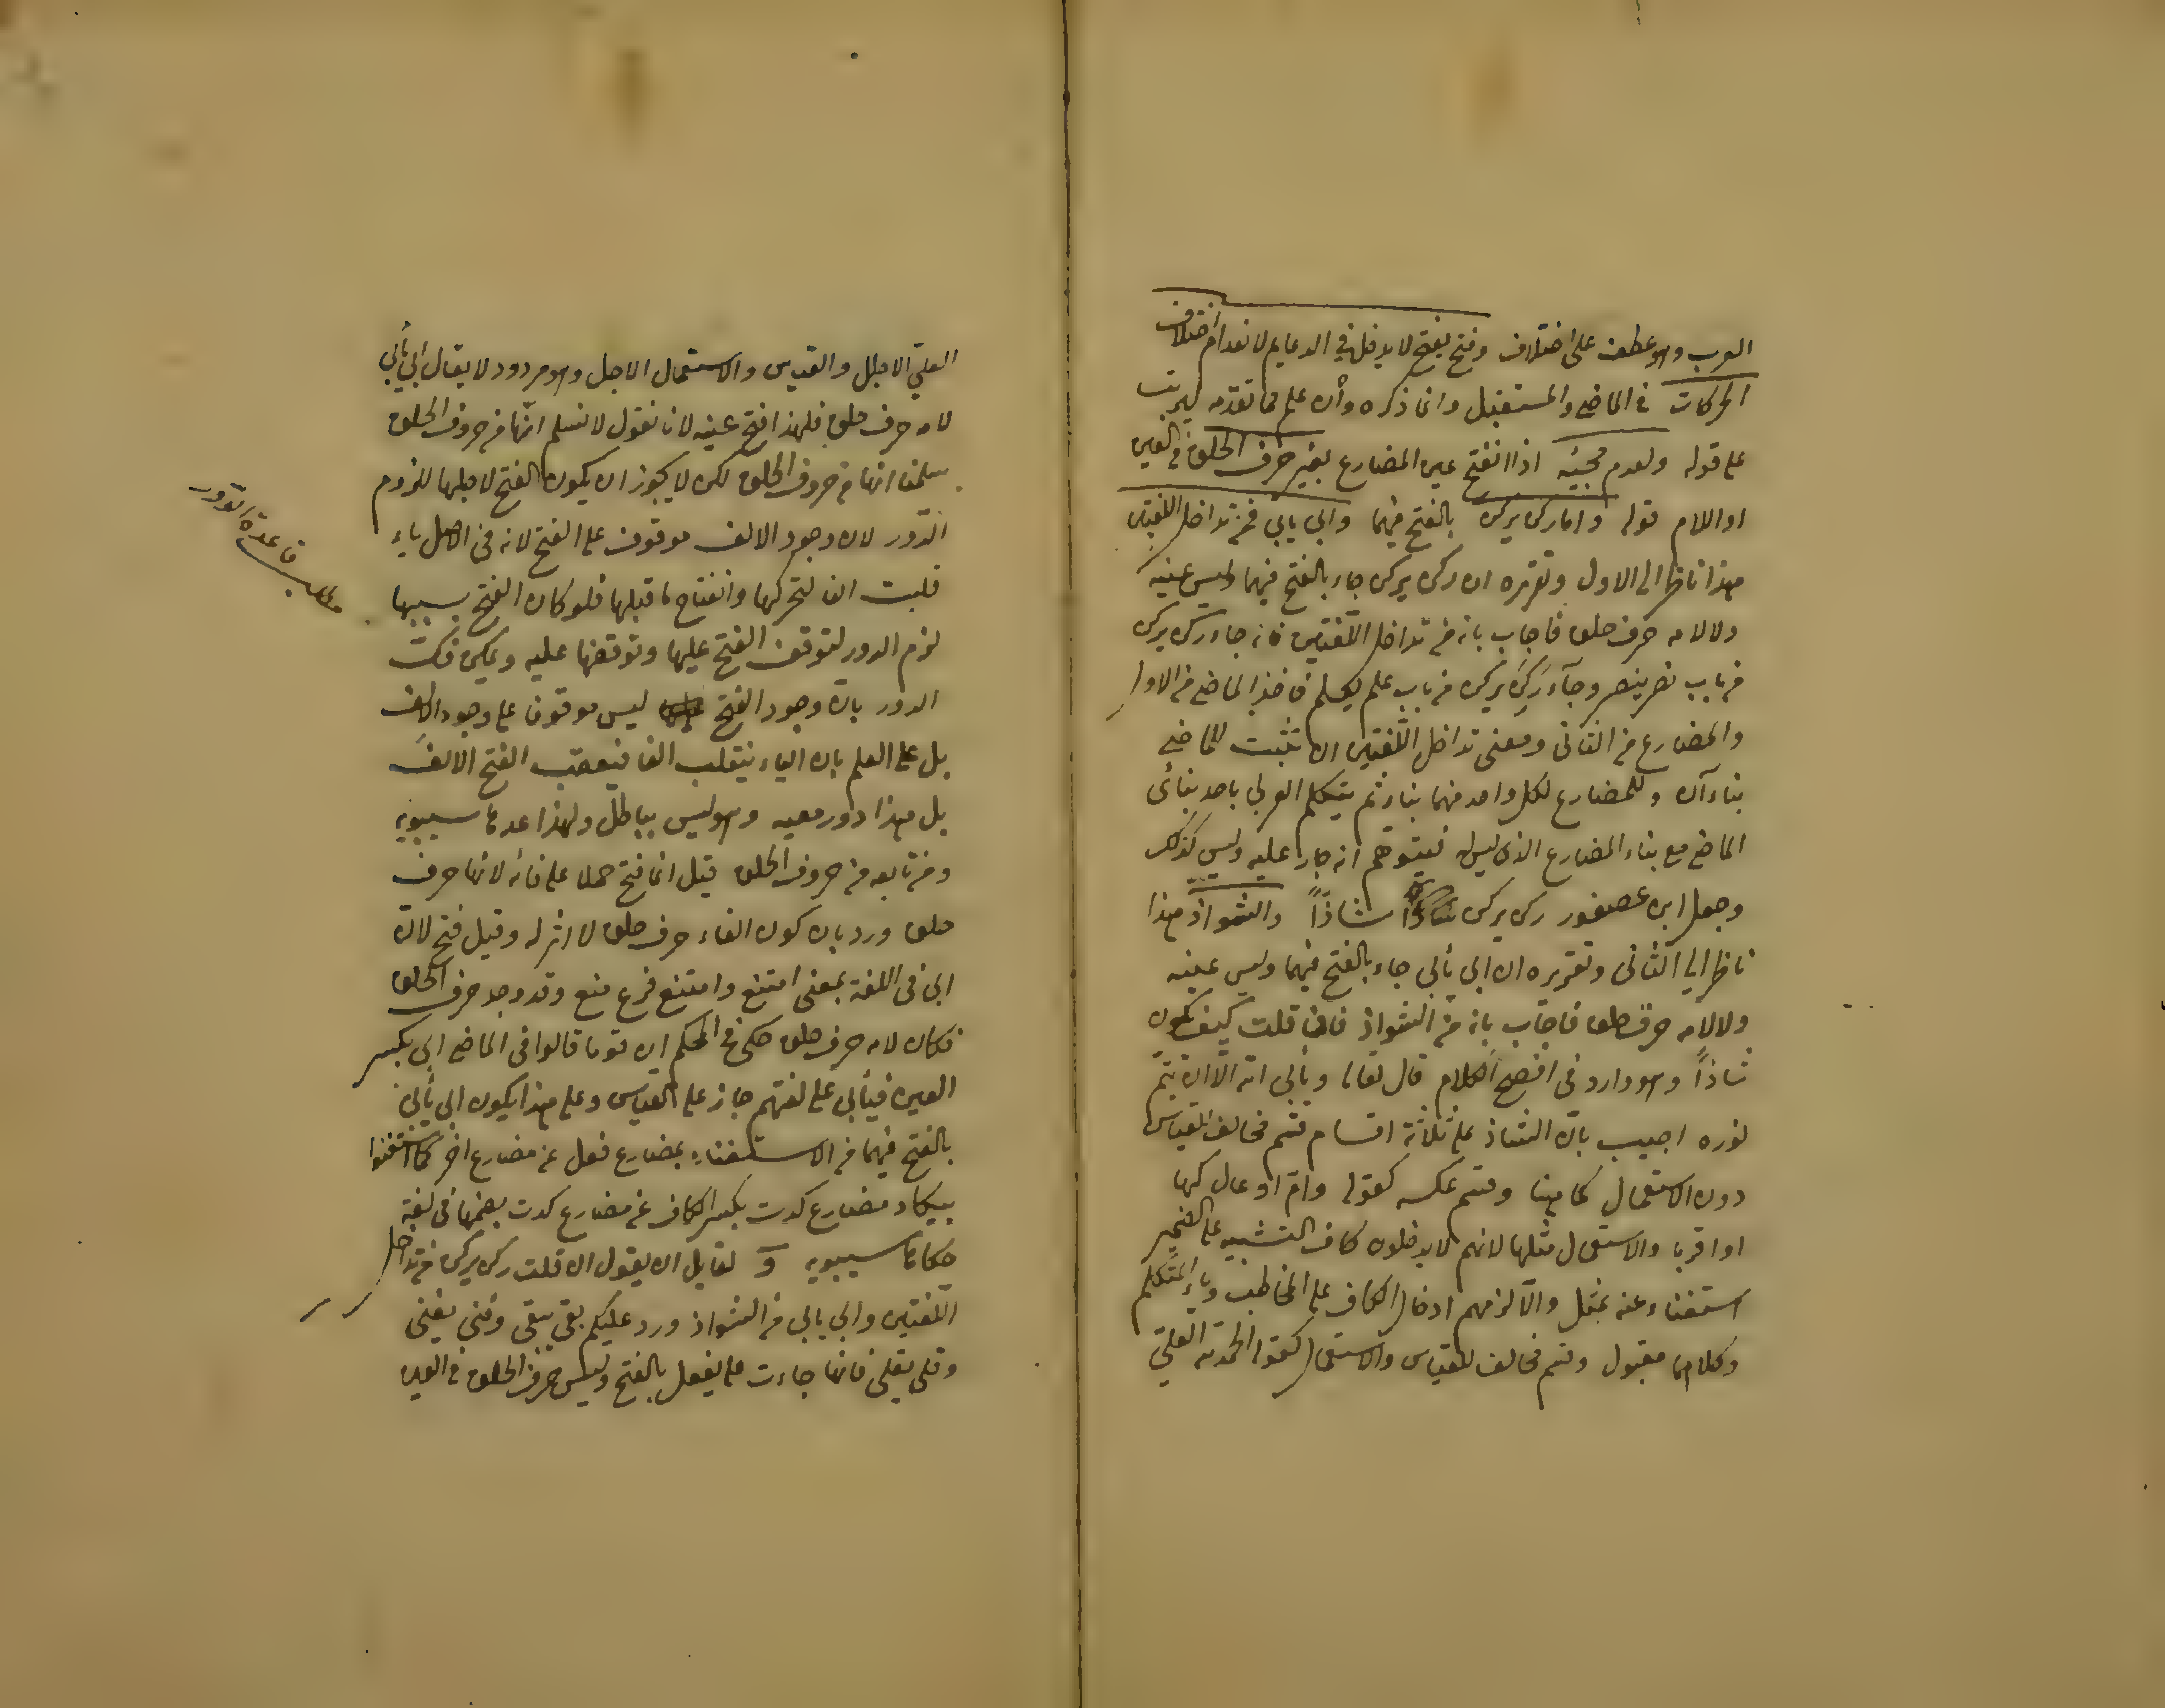 العرب وهو عطف على اختلاف وفتح يفتح لا يدخل في الدعايم لانعدام اختلاف
الحركات في الماضي والمستقبل وانما ذكره وان علم مما تقدم ليرتب
على قوله ولعدم مجيئه اذا انفتح عين المضارع بغير حرف الحلق في العين
او اللام قوله واما ركن يركن بالفتح فيهما وابى يابى فمن تداخل اللغتين
هذا ناظر الى الاول وتقريره ان ركن يركن جاء بالفتح فيهما وليس عينه
ولا لامه حرف حلق فاجاب بانه من تداخل اللغتين فانه جاء ركن يركن
من باب نصر ينصر وجآء ركن يركن من باب علم يعلم فاخذ الماضي من الاول
والمضارع من الثانى ومعنى تداخل اللغتين ان تثبت للماضي
بناءآن وللمضارع لكل واحد منهما بناء ثم يتكلم العربي باحد بنائى
الماضي مع بناء المضارع الذى ليس له فيتوهم انه جار عليه وليس كذلك
وجعل ابن عصفور ركن يركن شاذاً والشواذ هذا
ناظر الى الثانى وتقريره ان ابى يأبى جاء بالفتح فيهما وليس عينه
ولا لامه حرف حلق فاجاب بانه من الشواذ فان قلت كيف يكون
شاذاً وهو وارد فى افصح الكلام قال تعالى ويأبى الله الا ان يتم
نوره اجيب بان الشاذ على ثلاثة اقسام قسم مخالف للقياس
دون الاستعمال كما هنا وقسم عكسه كقوله وام اوعال كها
او اقربا والاستعمال مثلها لانهم لا يدخلون كاف التشبيه على الضمير
استغناء عنه بمثل والا لزمهم ادخال الكاف على المخاطب وياء المتكلم
وكلاهما مقبول وقسم مخالف للقياس والاستعمال كقوله الحمد لله العلي
العلي الاجلل والقياس والاستعمال الاجل وهو مردود لا يقال ابى يأبى
لامه حرف حلق فلهذا فتح عينه لانا نقول لا نسلم انها من حروف الحلق
سلمنا انها من حروف الحلق لكن لا يجوز ان يكون الفتح لاجلها للزوم
الدور لان وجود الالف موقوف على الفتح لانه فى الاصل ياء
قلبت الفا لتحركها وانفتاح ما قبلها فلو كان الفتح بسببها
لزم الدور لتوقف الفتح عليها وتوقفها عليه ويمكن فك
الدور بان وجود الفتح ليس موقوفا على وجود الالف
بل على العلم بان الياء ينقلب الفا فيعقب الفتح الالف
بل هذا دور معية وهو ليس بباطل ولهذا عدها سيبويه
ومن تابعه من حروف الحلق قيل انما فتح حملا على فائه لانها حرف
حلق ورد بان كون الفاء حرف حلق لا اثر له وقيل فتح لان
ابى فى اللغة بمعنى امتنع وامتنع فرع منع وقد وجد حرف الحلق
فكان لامه حرف حلق حكى في المحكم ان قوما قالوا فى الماضي ابى بكسر
العين فيأبى على لغتهم جاز على القياس وعلى هذا يكون ابى يأبى
بالفتح فيهما من الاستغناء بمضارع فعل عن مضارع اخر كما استغنوا
بيكاد مضارع كدت بكسر الكاف عن مضارع كدت بضمها فى لغة
حكاها سيبويه و لقايل ان يقول ان قلت ركن يركن من تداخل
اللغتين وابى يابى من الشواذ ورد عليكم بقى يبقى وفنى يفنى
وقلى يقلى فانها جاءت على يفعل بالفتح وليس حرف الحلق في العين
مطلب قاعدة الدور